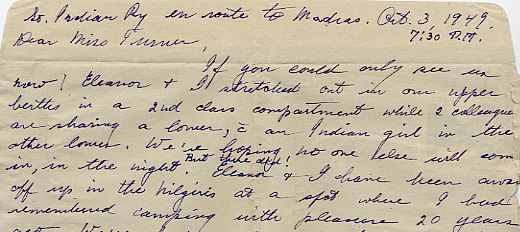 So. Indian Ry en route to Madras. Oct. 3, 1949.
7:30 P.M.
Dear Miss Turner,
If you could only see us
now! Eleanor & I stretched out in our upper
berths in a 2nd class compartment while 2 colleague
are sharing a lower, c̄ an Indian girl in the
other lower. We're hoping no one else will com
in, in the night. But they did! Eleanor & I have been away
off up in the Nilgiris at a spot where I had
remembered camping with pleasure 20 years